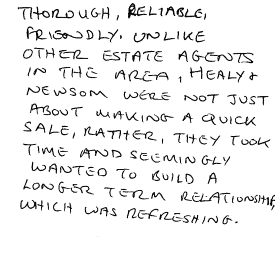 THOROUGH, RELIABLE,
FRIENDLY. UNLIKE
OTHER ESTATE AGENTS
IN THE AREA, HEALY +
NEWSOM WERE NOT JUST
ABOUT MAKING A QUICK
SALE, RATHER, THEY TOOK
TIME AND SEEMINGLY
WANTED TO BUILD A
LONGER TERM RELATIONSHIP,
WHICH WAS REFRESHING.